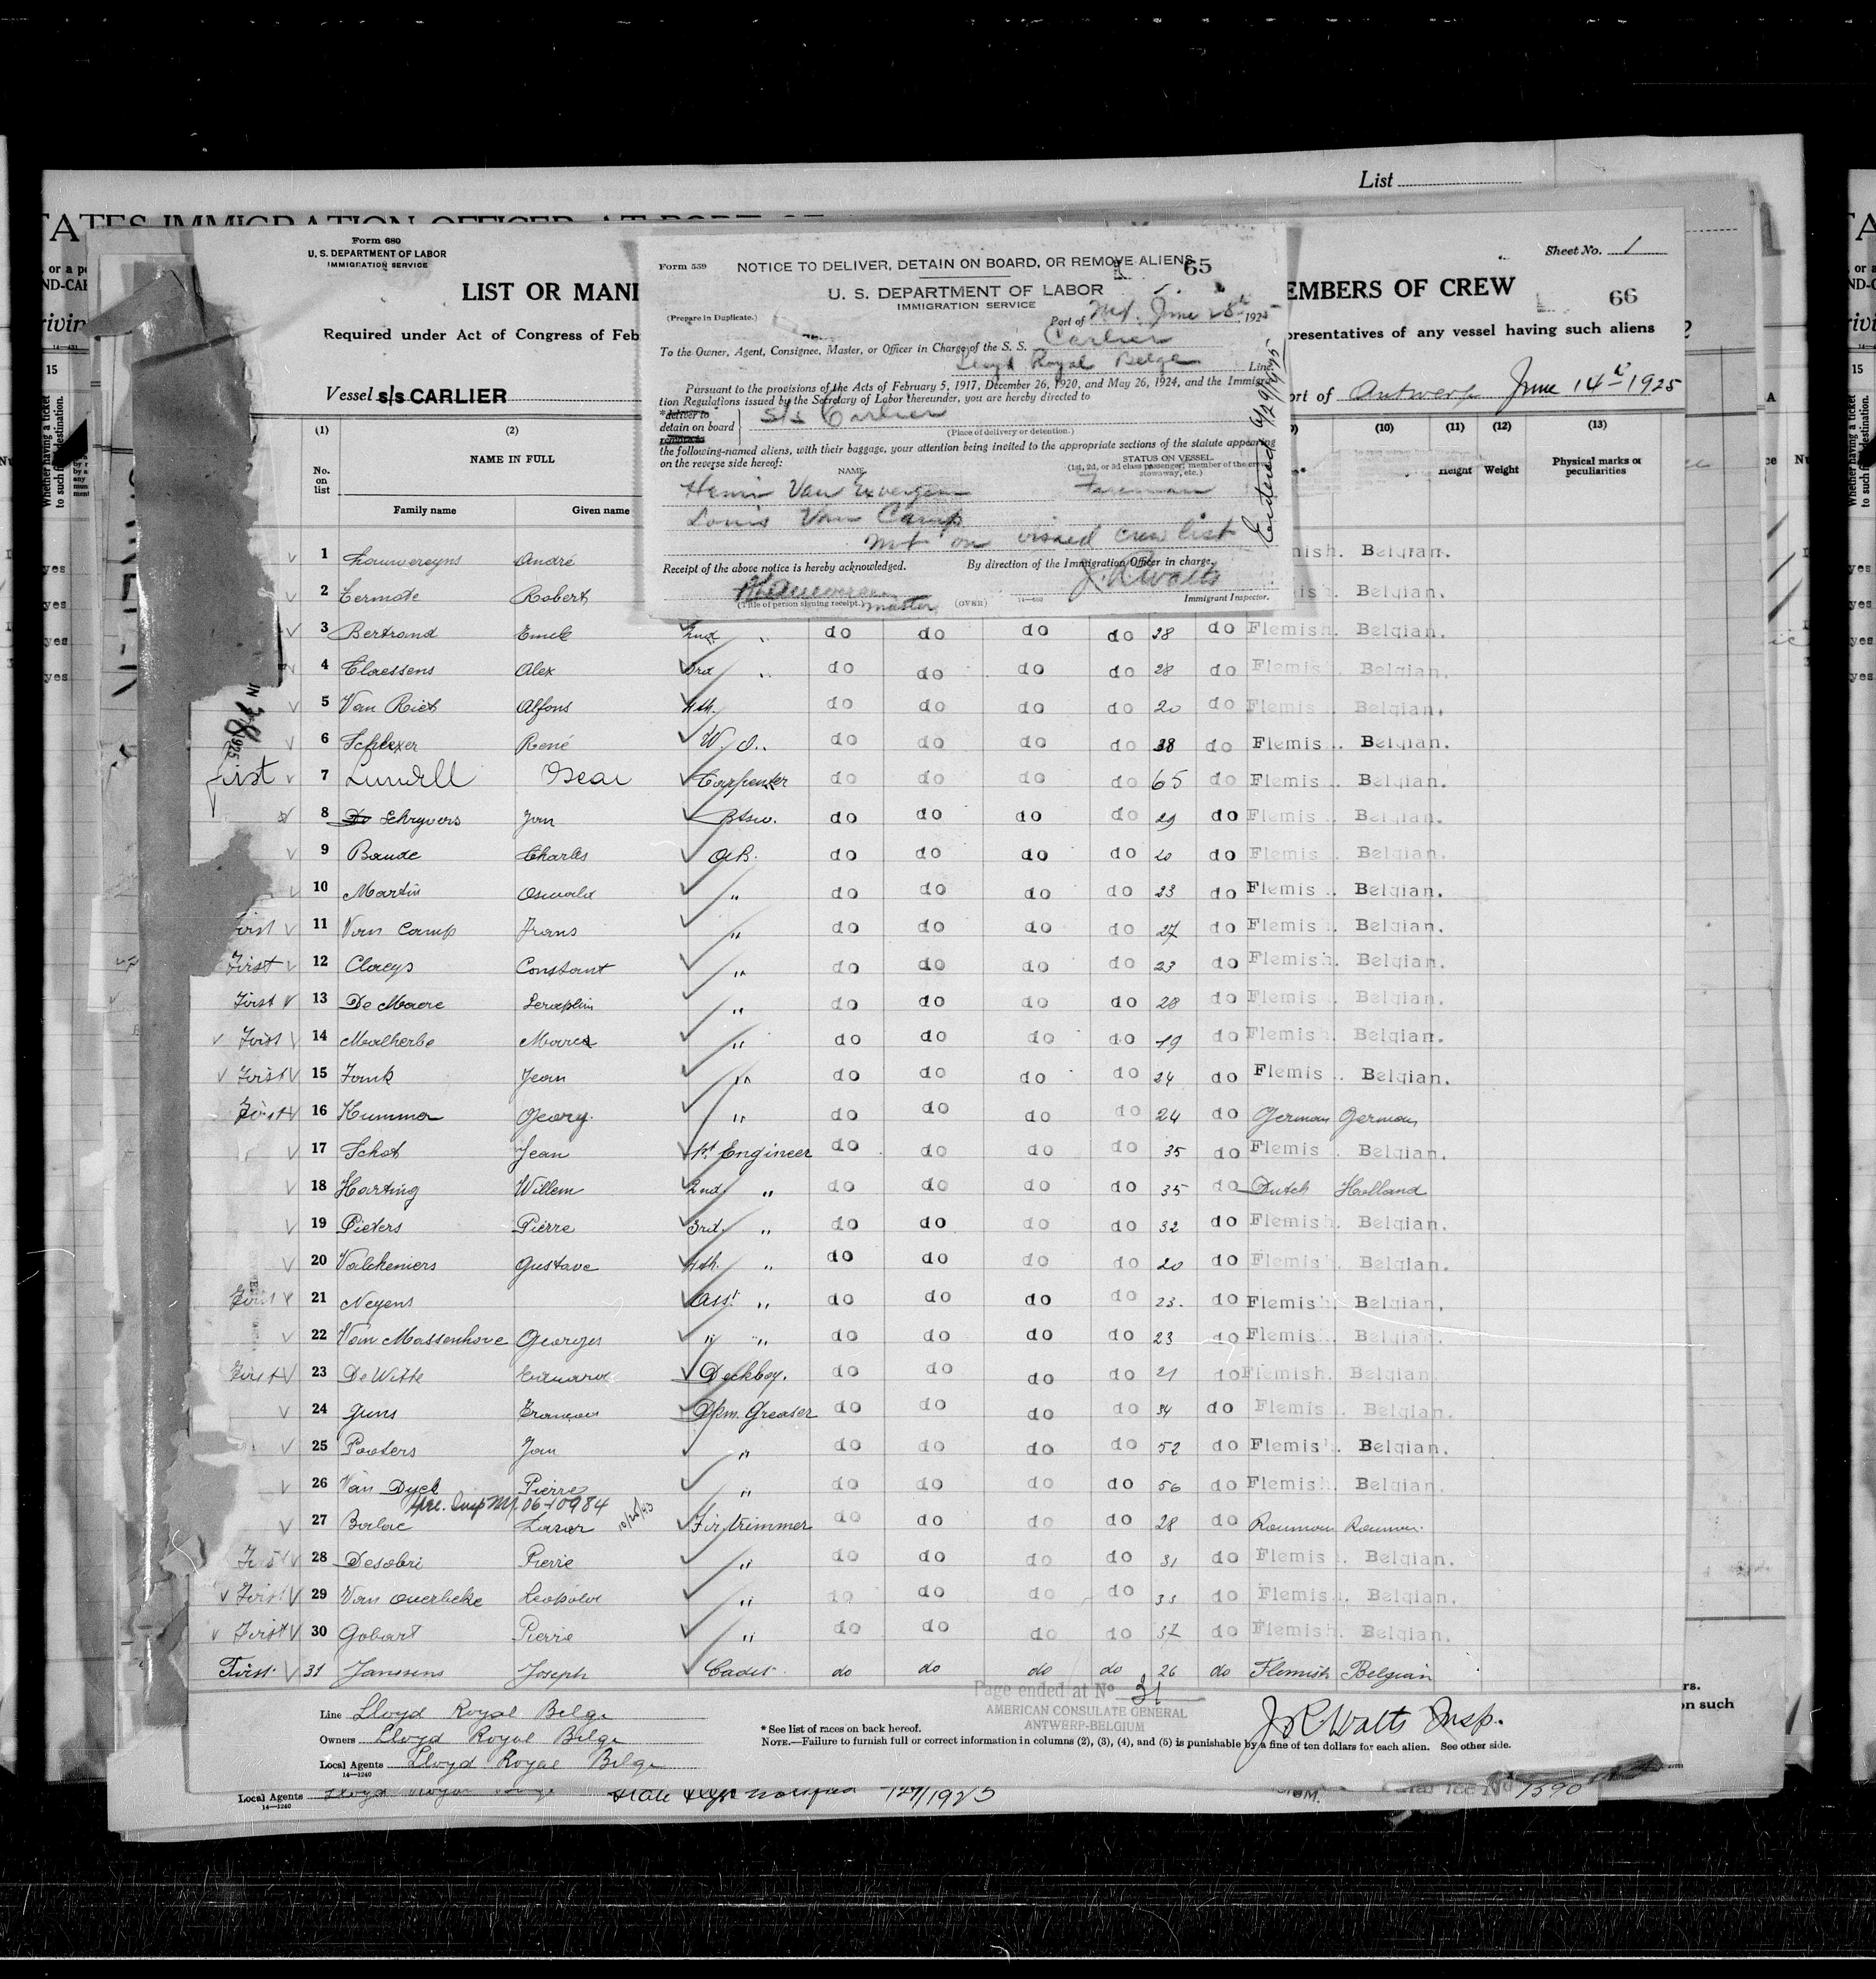 List
Form 680
U. S. DEPARTMENT OF LABOR
IMMIGRATION SERVICE
Sheet No. 1
LIST OR MANI
EMBERS OF CREW
66
Required under Act of Congress of Feb
presentatives of any vessel having such aliens
Vessel s/s CARLIER
ort of Antwerp June 14th 1925
Form 559
NOTICE TO DELIVER, DETAIN ON BOARD, OR REMOVE ALIENS
65
U. S. DEPARTMENT OF LABOR
IMMIGRATION SERVICE
(Prepare in Duplicate.)
Port of N.Y. June 28th, 1925
To the Owner, Agent, Consignee, Master, or Officer in Charge of the S. S. Carlier
Lloyd Royal Belge Line
Pursuant to the provisions of the Acts of February 5, 1917, December 26, 1920, and May 26, 1924, and the Immigra-
tion Regulations issued by the Secretary of Labor thereunder, you are hereby directed to
*deliver to
detain on board
remove
s/s Carlier
(Place of delivery or detention.)
the following-named aliens, with their baggage, your attention being invited to the appropriate sections of the statute appearing
on the reverse side hereof:
NAME.
STATUS ON VESSEL.
(1st, 2d, or 3d class passenger, member of the crew, stowaway, etc.)
Henri Van
Fireman
Louis Van Camp
not on visaed crew list
Entered 6/29/1925
Receipt of the above notice is hereby acknowledged.
By direction of the Immigration Officer in charge,
J. R. Watts
(Title of person signing receipt.) master
(OVER)
14—680
Immigrant Inspector.
(1) (2) (10) (11) (12) (13)
No. on list
NAME IN FULL
Family name Given name
Height Weight Physical marks or peculiarities
1 Lauwereyns André nish. Belgian.
2 Termote Robert ish. Belgian.
3 Bertrand Emile 2nd " do do do do 38 do Flemish. Belgian.
4 Claessens Alex 3rd " do do do do 28 do Flemis Belgian.
5 Van Riet Alfons 4th. do do do do 20 do Flemis Belgian.
6 René W. O. do do do do 38 do Flemis . Belgian.
first 7 Oscar Carpenter do do do do 65 do Flemis . Belgian.
8 De Schryvers Jan Btsw. do do do do 29 do Flemis . Belgian.
9 Baude Charles A.B. do do do do 20 do Flemis . Belgian.
10 Martin Oswald " do do do do 23 do Flemis . Belgian.
First 11 Van Camp Frans " do do do do 27 do Flemis . Belgian.
First 12 Claeys Constant " do do do do 23 do Flemish. Belgian.
First 13 De Maere Seraphin " do do do do 28 do Flemis . Belgian.
First 14 Malherbe Marcel " do do do do 19 do Flemis . Belgian.
First 15 Fonk Jean " do do do do 24 do Flemis . Belgian.
First 16 Kummer Georg. " do do do do 24 do German German
17 Schot Jean 1st Engineer do do do do 35 do Flemis . Belgian.
18 Harting Willem 2nd " do do do do 35 do Dutch Holland
19 Pieters Pierre 3rd. " do do do do 32 do Flemish. Belgian.
20 Valckeniers Gustave 4th. " do do do do 20 do Flemis . Belgian.
First 21 Neyens Asst " do do do do 23. do Flemis . Belgian.
22 Van Massenhove Georges " " do do do do 23 do Flemis . Belgian.
First 23 De Witte Edward Deckboy. do do do do 21 do Flemish. Belgian.
24 Guns Francois Dkm. Greaser do do do do 34 do Flemis . Belgian.
25 Pooters Jan " do do do do 52 do Flemis . Belgian.
26 Van Dyck Pierre " do do do do 56 do Flemish. Belgian.
10/25/43
27 Balac Lazar Fir/trimmer do do do do 28 do Rouman Rouman.
First 28 Desobri Pierre " do do do do 31 do Flemis . Belgian.
First 29 Van Overbeke Leopold " do do do do 35 do Flemis . Belgian.
First 30 Gobart Pierre " do do do do 32 do Flemish. Belgian.
First 31 Janssens Joseph Cadet do do do do 26 do Flemish Belgian
Page ended at No 31
AMERICAN CONSULATE GENERAL
ANTWERP-BELGIUM
Line Lloyd Royal Belge
Owners Lloyd Royal Belge
Local Agents Lloyd Royal Belge
14—1240
J R Watts Insp.
* See list of races on back hereof.
NOTE.—Failure to furnish full or correct information in columns (2), (3), (4), and (5) is punishable by a fine of ten dollars for each alien. See other side.
Local Agents Lloyd Royal Belge
14—1240